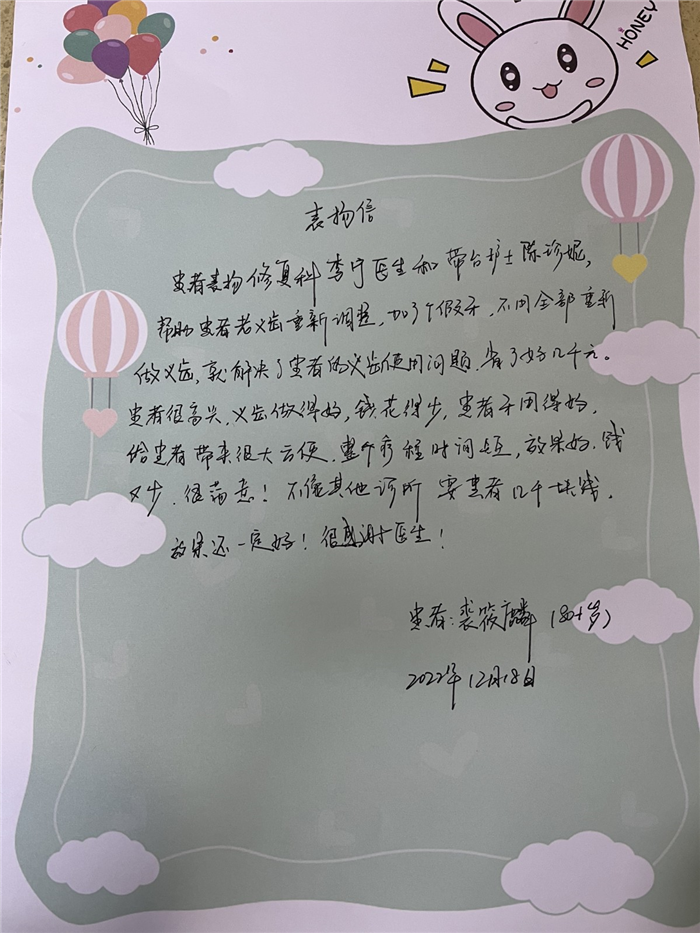 HONEY
表扬信
患者表扬修复科李宁医生和带台护士陈珍妮,
帮助患者老义齿重新调整,加了个假牙,不用全部重新
做义齿,就解决了患者的义齿使用问题,省了好几千元。
患者很高兴,义齿做得好,钱花得少,患者牙用得好,
给患者带来很大方便,整个疗程时间短,效果好,钱
又少,很满意!不像其他诊所 要患者几千块钱,
效果还一定好!很感谢医生!
患者:裘筱麟(80+岁)
2022年12月18日